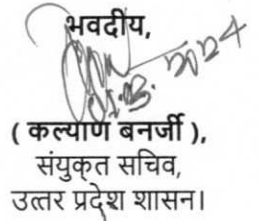 भवदीय,
( कल्याण बनर्जी ),
संयुक्त सचिव,
उत्तर प्रदेश शासन।